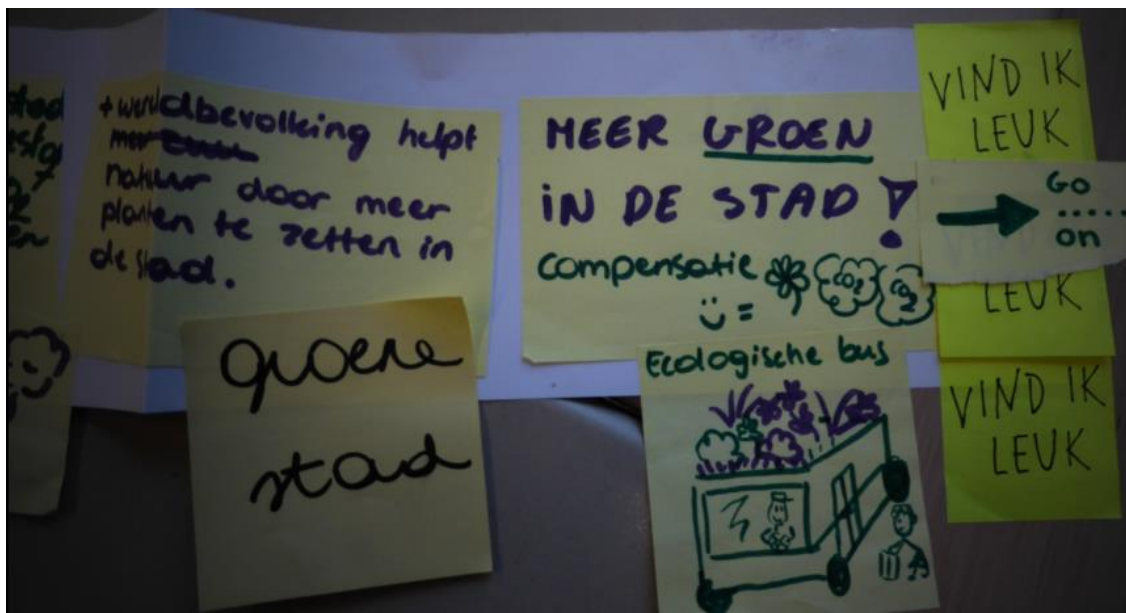 stad
+ wereldbevolking helpt
natuur door meer
planten te zetten in
de stad.
groene
stad
MEER GROEN
iN DE STAD!
compensatie
CO2 CO2
=
Ecologische bus
VIND IK
LEUK
Go
on
LEUK
VIND IK
LEUK